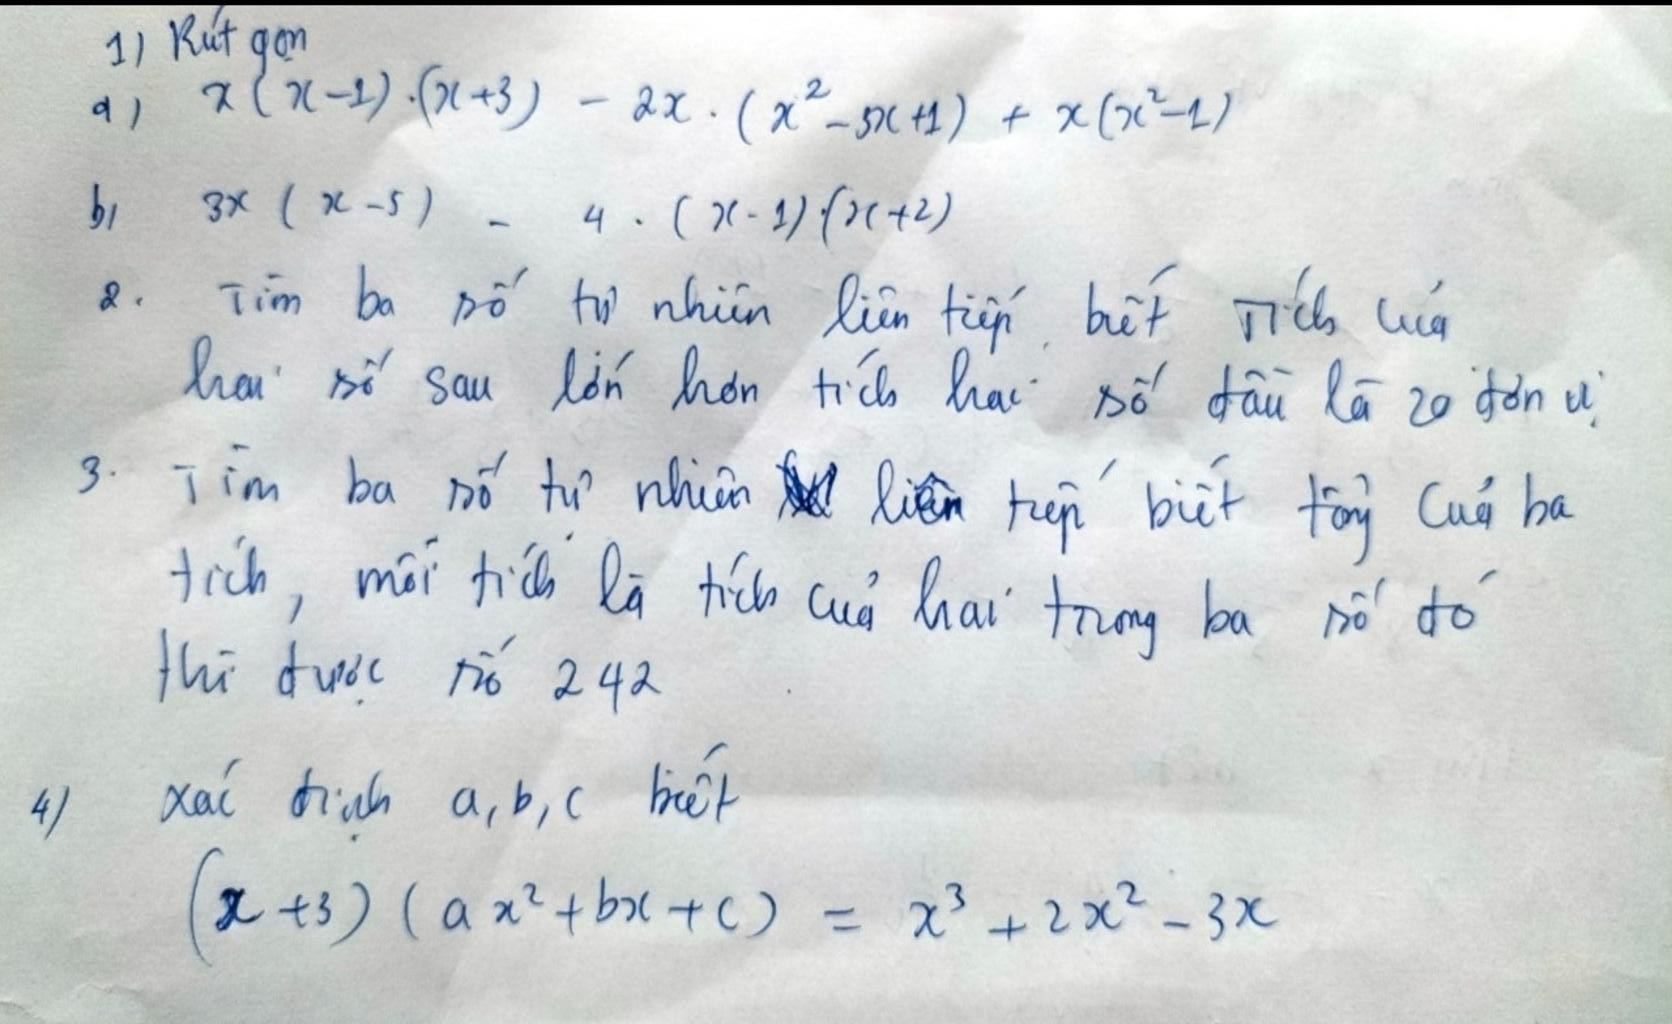 1) Rút gọn
a) x(x-1).(x+3) - 2x.(x² - 5x+1) + x(x²-1)
b) 3x(x-5) - 4.(x-1).(x+2)
2. Tìm ba số tự nhiên liên tiếp, biết Tích của
hai số sau lớn hơn tích hai số đầu là 20 đơn vị.
3. Tìm ba số tự nhiên liên tiếp biết tổng của ba
tích, mỗi tích là tích của hai trong ba số đó
thì được số 242
4) xác định a, b, c biết
(x+3)(ax²+bx+c) = x³ + 2x² - 3x